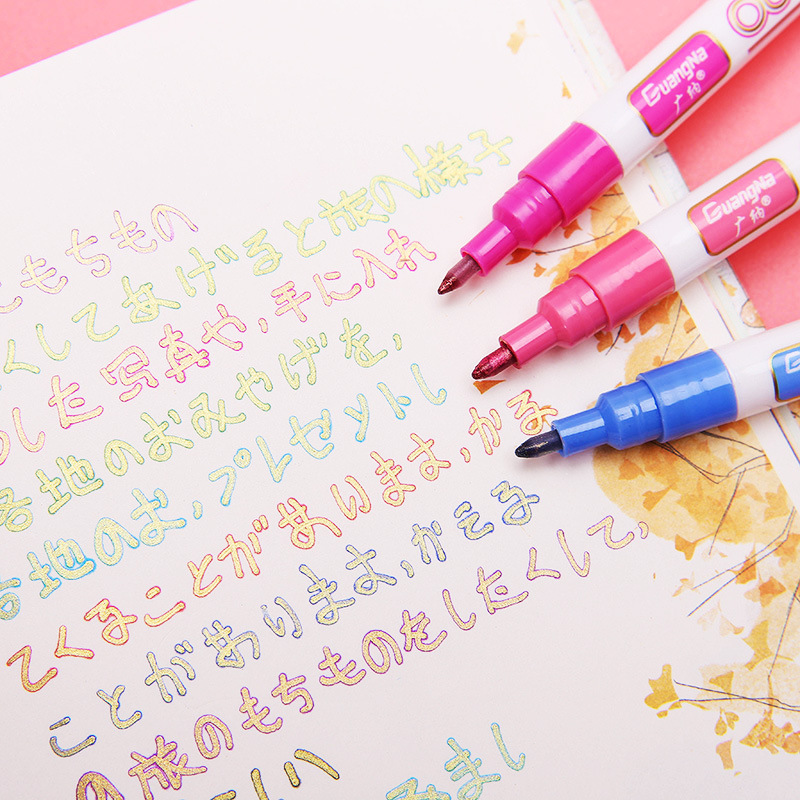 もちもの
くしてあげると旅の様子
した写真や,手に入れ
各地のおみやげを,
地のお,プレゼントし
てくることがあります,かえる
ことがあります,かえる
の旅のもちものをしたくして,
しい
みまし
GuangNa
广纳®
GuangNa
广纳®